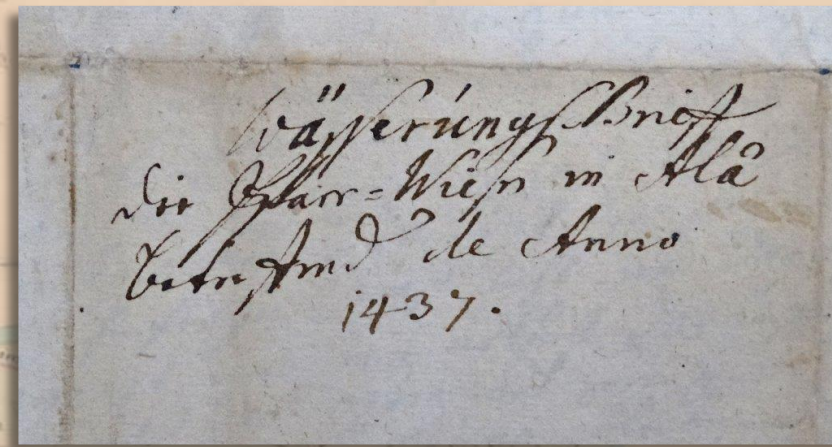 WässerungsBrieff
die Pfarr=Wiesen in Ala
betreffend de Anno
1437.